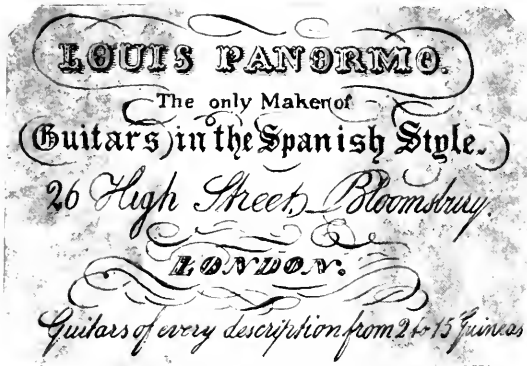 LOUIS PANORMO.
The only Maker of
Guitars in the Spanish Style.
26 High Street, Bloomsbury.
LONDON.
Guitars of every description from 2 to 15 Guineas